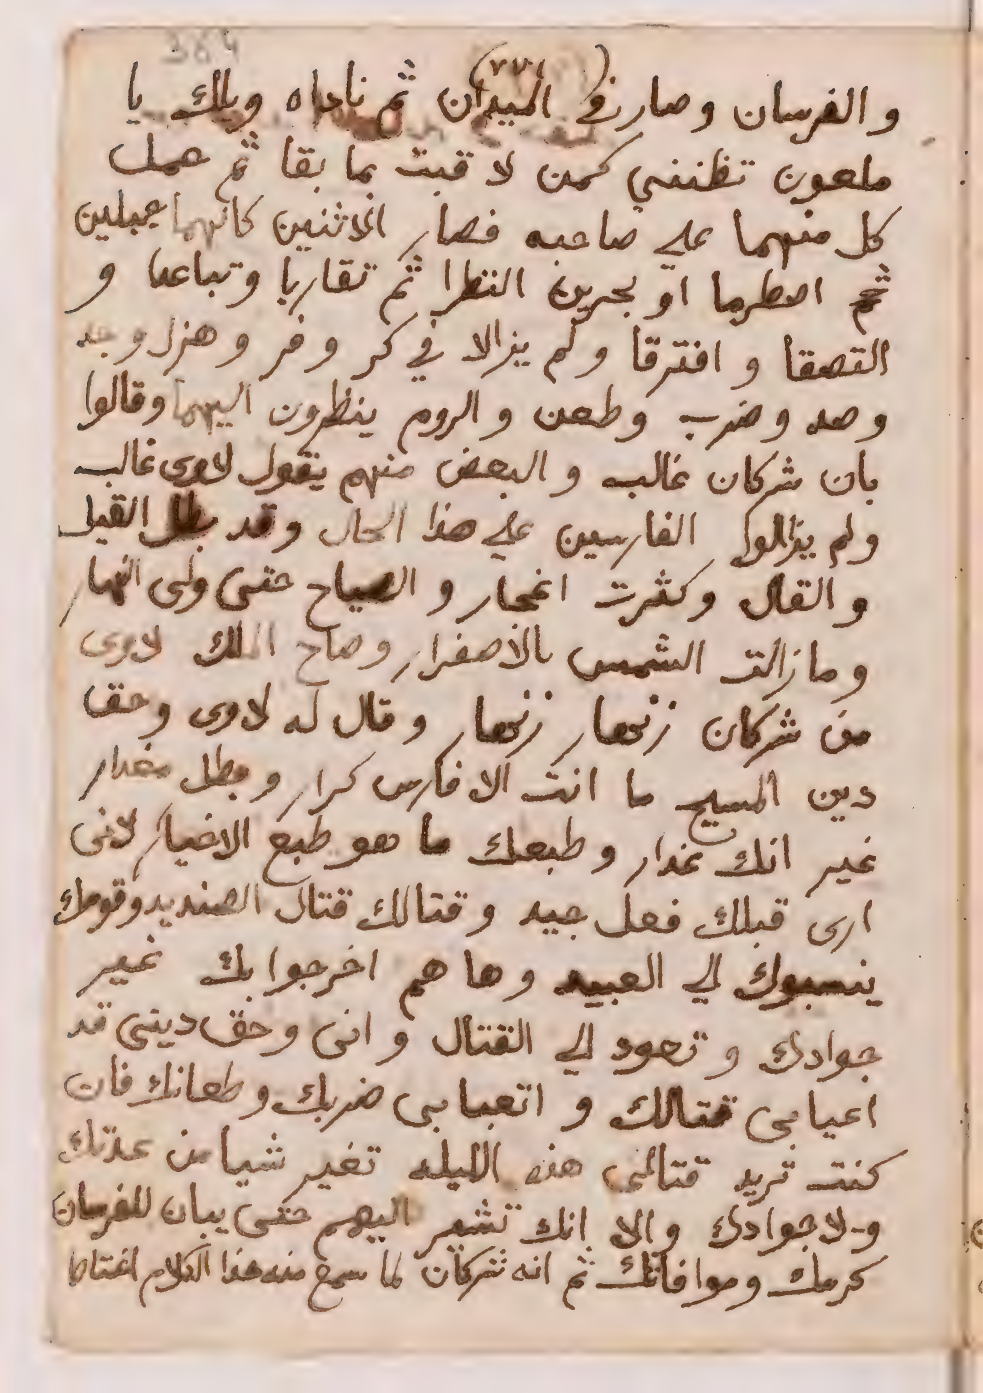 384
(٧٧١)
و الفرسان وصار في الميدان ثم ناداه ويلك يا
ملعون تظنني كمن لاقيت بما بقا ثم حمل
كل منهما على صاحبه فصار الاثنين كانهما جبلين
اصطدما او بحرين التطما ثم تقاربا وتباعدا و
التصقا و افترقا و لم يزالا في كر و فر و هزل و جد
و صد و ضرب وطعن و الروم ينظرون اليهما وقالوا
بان شركان غالب و البعض منهم يقول لاوى غالب
و لم يزالوا الفارسين على هذا الحال وقد بطل القيل
و القال وكثرت الصياح حتى ولى النهار
و مازالت الشمس بالاصفرار وصاح الملك لاوى
من شركان زنهار زنهار وقال له لاوى وحق
دين المسيح ما انت الا فارس كرار و بطل مغدار
غير انك غدار و طبعك ما هو طبع الاخيار لانى
ارى قبلك فعل جيد وقتالك قتال الصنديد وقومك
ينسبوك الي العبيد و ها هم اخرجوا بك غير
جوادك و تعود الي القتال و انى وحق دينى قد
اعيا بى قتالك و اتعبا بى ضربك وطعانك فان
كنت تريد قتالى هذه الليله تغير شيا من عدتك
ولا جوادك والا انك تشير اليهم حتى يبان للفرسان
كرمك وموافاتك ثم انه شركان لما سمع منه هذا الكلام اغتاظ